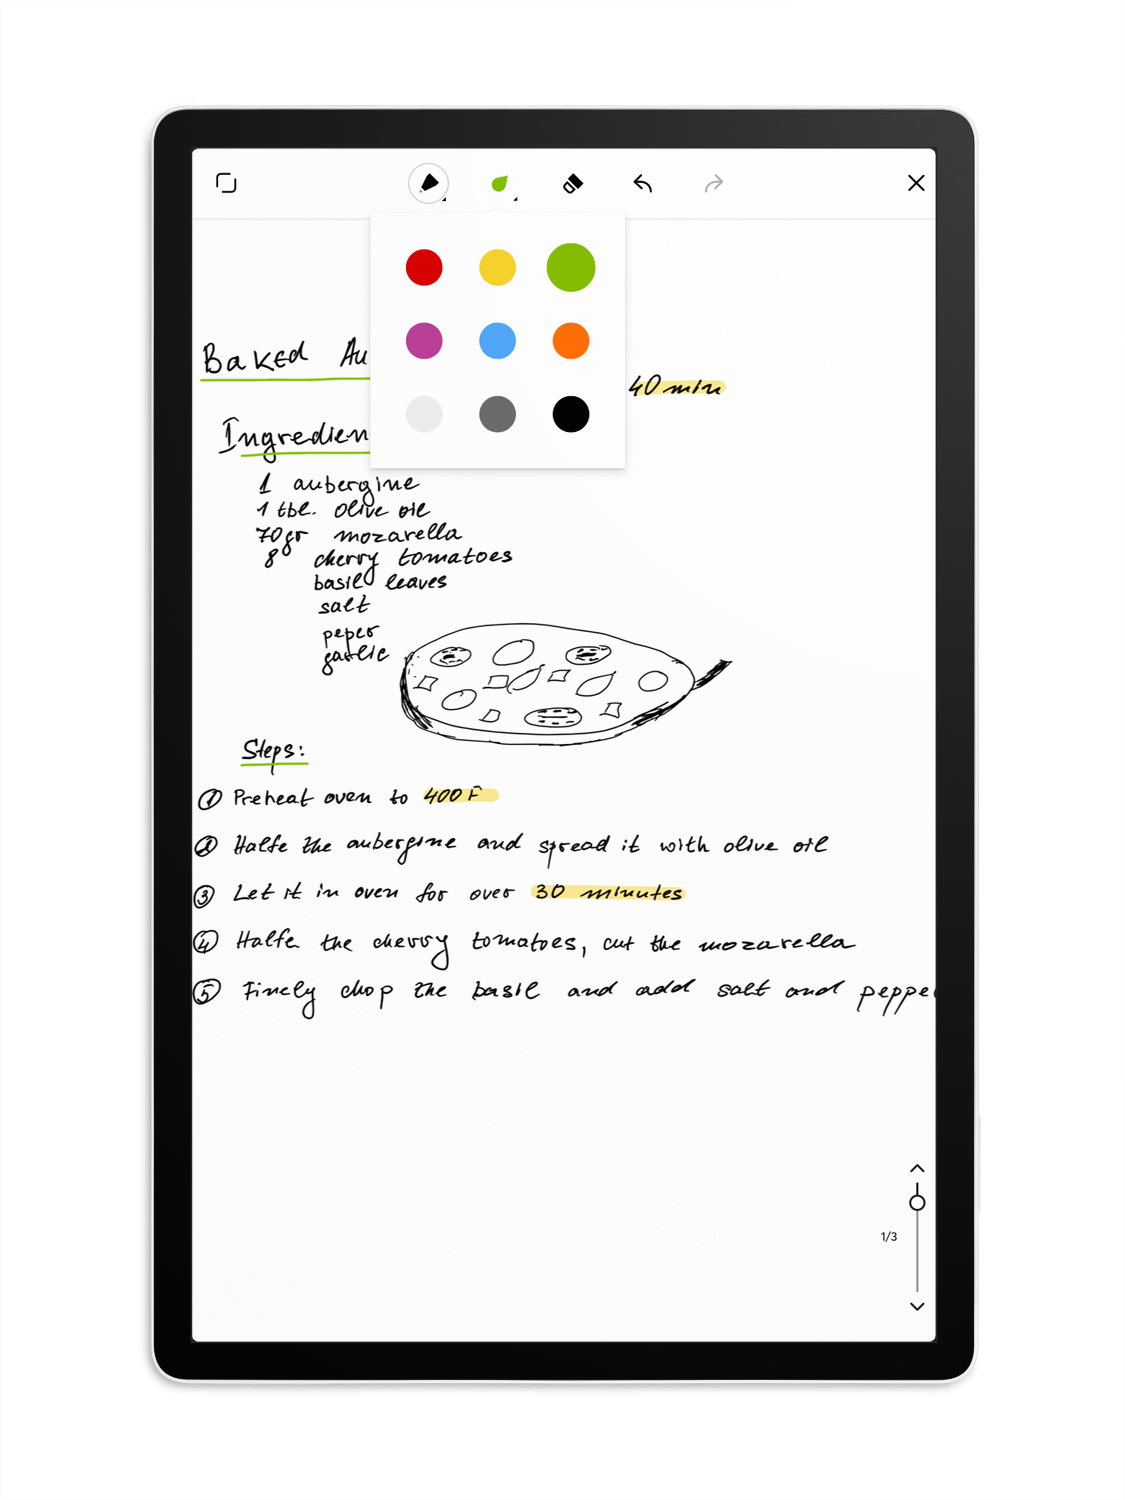 Baked Au
40 min
Ingredien
1 aubergine
1 tbl. olive oil
70gr mozarella
8 cherry tomatoes
basil leaves
salt
peper
garlic
Steps:
1 Preheat oven to 400 F
2 Halfe the aubergine and spread it with olive oil
3 Let it in oven for over 30 minutes
4 Halfe the cherry tomatoes, cut the mozarella
5 Finely chop the basil and add salt and peppe
1/3